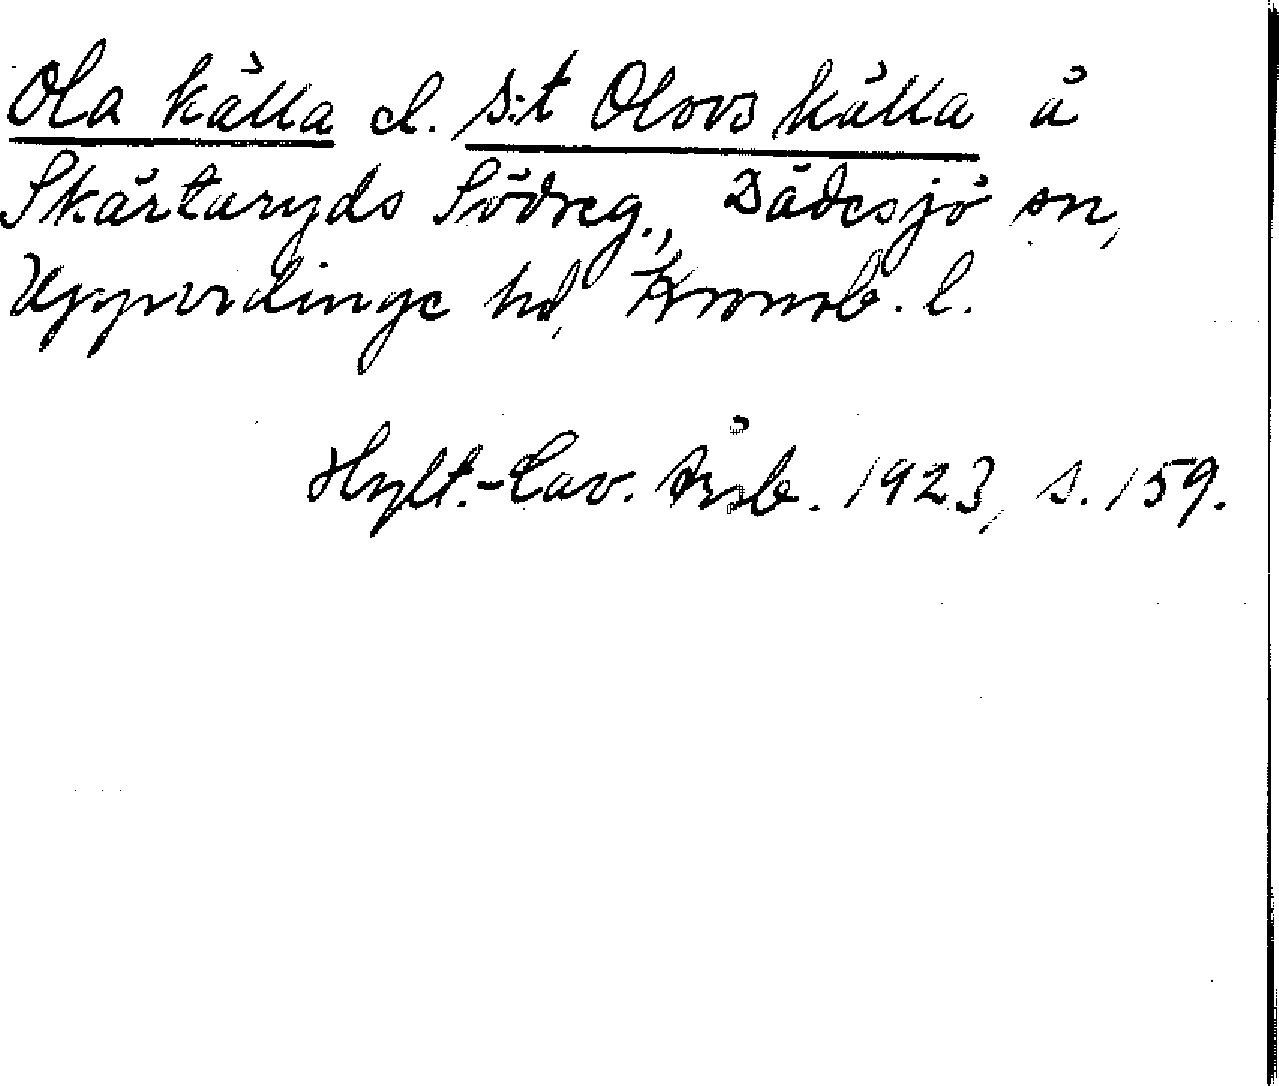 Ola källa el. S:t Olovs källa å
Skärtaryds Södreg., Dädesjö sn,
Uppvidinge hd, Kronob. l.
Hylt.-Cav. Årsb. 1923, s. 159.